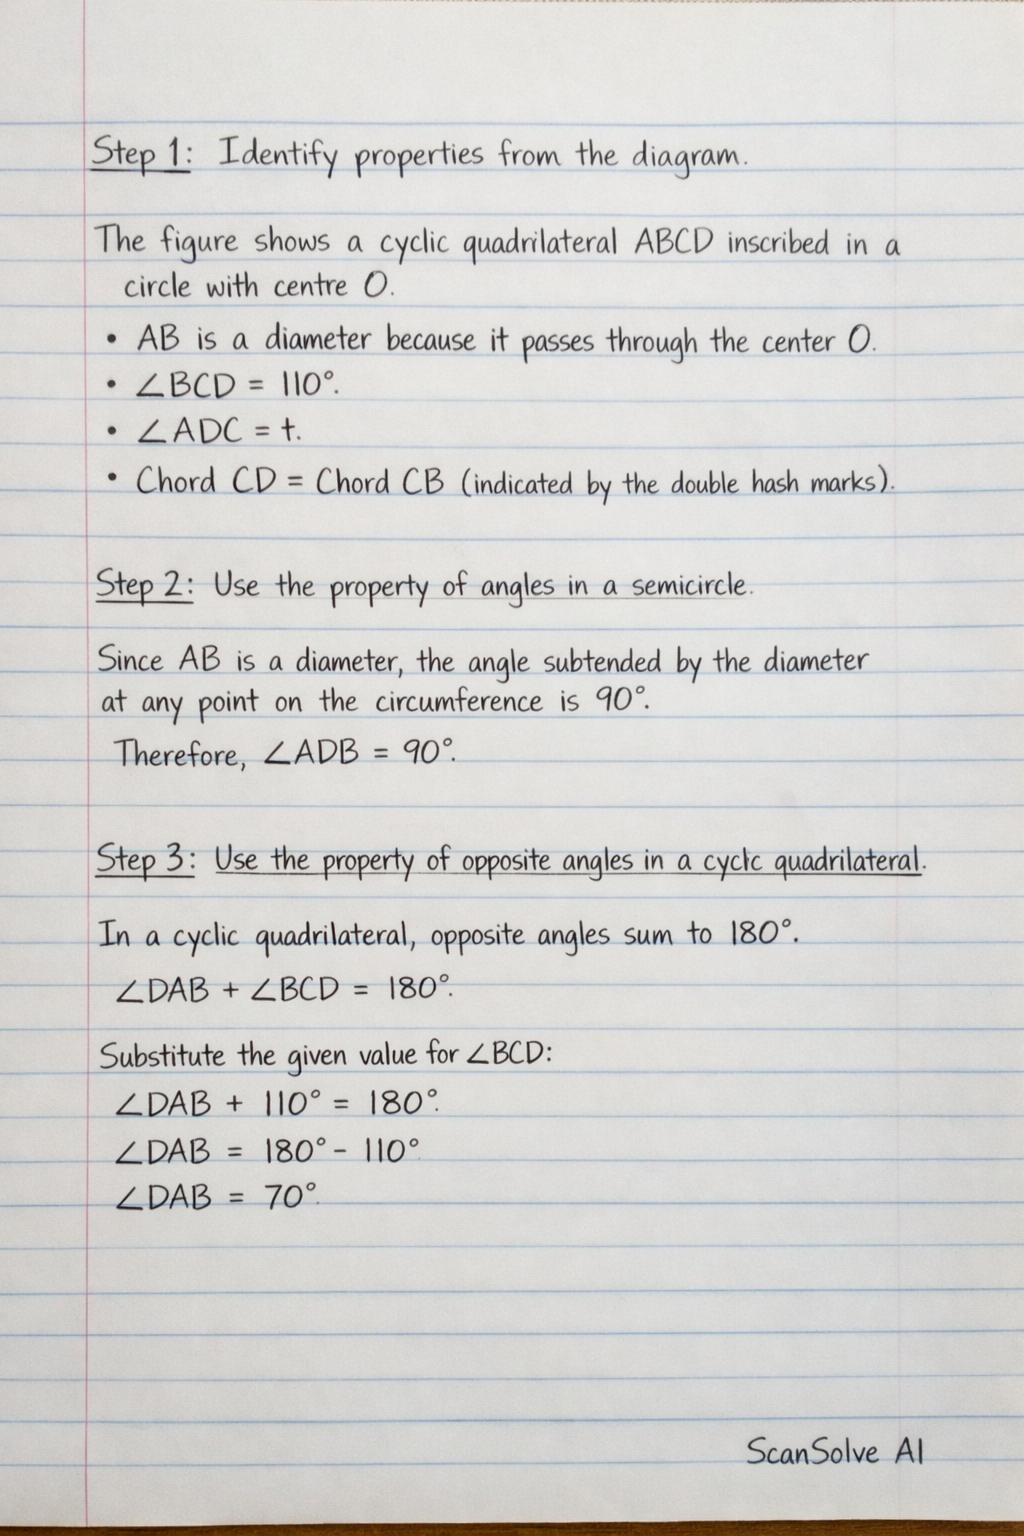 Step 1: Identify properties from the diagram.
The figure shows a cyclic quadrilateral ABCD inscribed in a
circle with centre O.
• AB is a diameter because it passes through the center O.
• ∠BCD = 110°.
• ∠ADC = t.
• Chord CD = Chord CB (indicated by the double hash marks).
Step 2: Use the property of angles in a semicircle.
Since AB is a diameter, the angle subtended by the diameter
at any point on the circumference is 90°.
Therefore, ∠ADB = 90°.
Step 3: Use the property of opposite angles in a cyctc quadrilateral.
In a cyclic quadrilateral, opposite angles sum to 180°.
∠DAB + ∠BCD = 180°.
Substitute the given value for ∠BCD:
∠DAB + 110° = 180°.
∠DAB = 180° - 110°
∠DAB = 70°.
ScanSolve AI